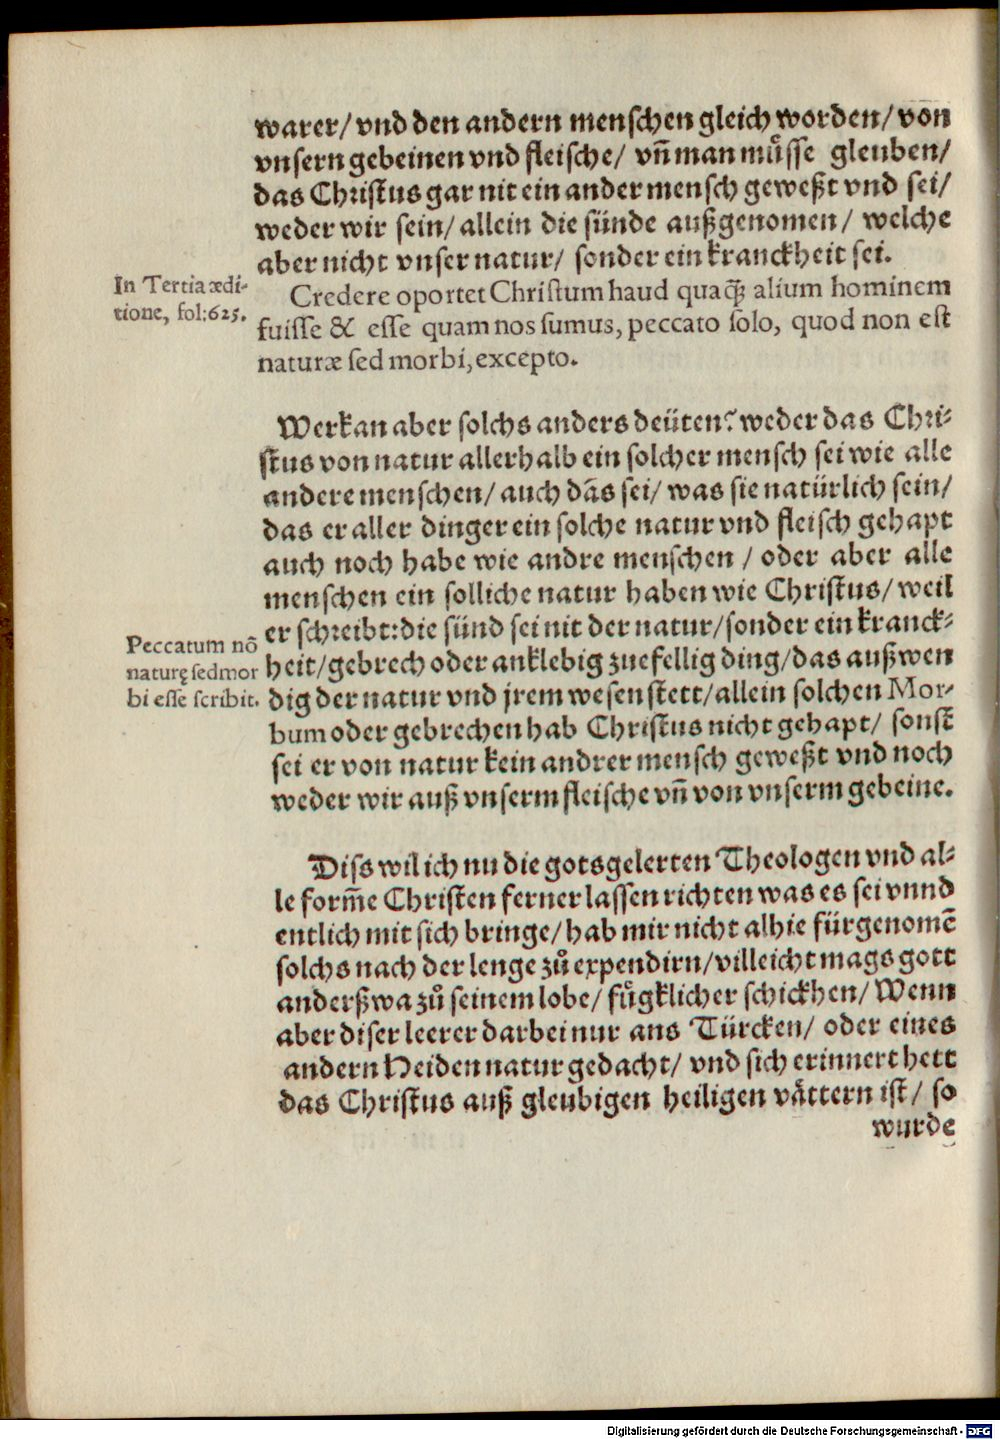 warer/ vnd den andern menschen gleich worden/ von
vnsern gebeinen vnd fleische/ vñ man müsse gleuben/
das Christus gar nit ein ander mensch geweßt vnd sei/
weder wir sein/ allein die sünde außgenomen/ welche
aber nicht vnser natur/ sonder ein kranckheit sei.
In Tertia ædi-
tione, fol:625.
Credere oportet Christum haud quaq̃ꝫ alium hominem
fuisse & esse quam nos sumus, peccato solo, quod non est
naturæ sed morbi, excepto.
Wer kan aber solchs anders deüten? weder das Chri-
stus von natur allerhalb ein solcher mensch sei wie alle
andere menschen/ auch dãs sei/ was sie natürlich sein/
das er aller dinger ein solche natur vnd fleisch gehapt
auch noch habe wie andre menschen / oder aber alle
menschen ein solliche natur haben wie Christus/ weil
er schreibt: die sünd sei nit der natur/ sonder ein kranck-
Peccatum nõ
naturę sed mor
bi esse scribit.
heit/ gebrech oder anklebig zuefellig ding/ das außwen
dig der natur vnd jrem wesen stett/ allein solchen Mor-
bum oder gebrechen hab Christus nicht gehapt/ sonst
sei er von natur kein andrer mensch geweßt vnd noch
weder wir auß vnserm fleische vñ von vnserm gebeine.
Diss wil ich nu die gotsgelerten Theologen vnd al-
le form̃e Christen ferner lassen richten was es sei vnnd
entlich mit sich bringe/ hab mir nicht alhie fürgenomẽ
solchs nach der lenge zů expendirn/ villeicht mags gott
anderßwa zů seinem lobe/ fůgklicher schickhen/ Wenn
aber diser leerer darbei nur ans Türcken/ oder eines
andern Heiden natur gedacht/ vnd sich erinnert hett
das Christus auß gleubigen heiligen vättern ist/ so
wurde
Digitalisierung gefördert durch die Deutsche Forschungsgemeinschaft - DFG